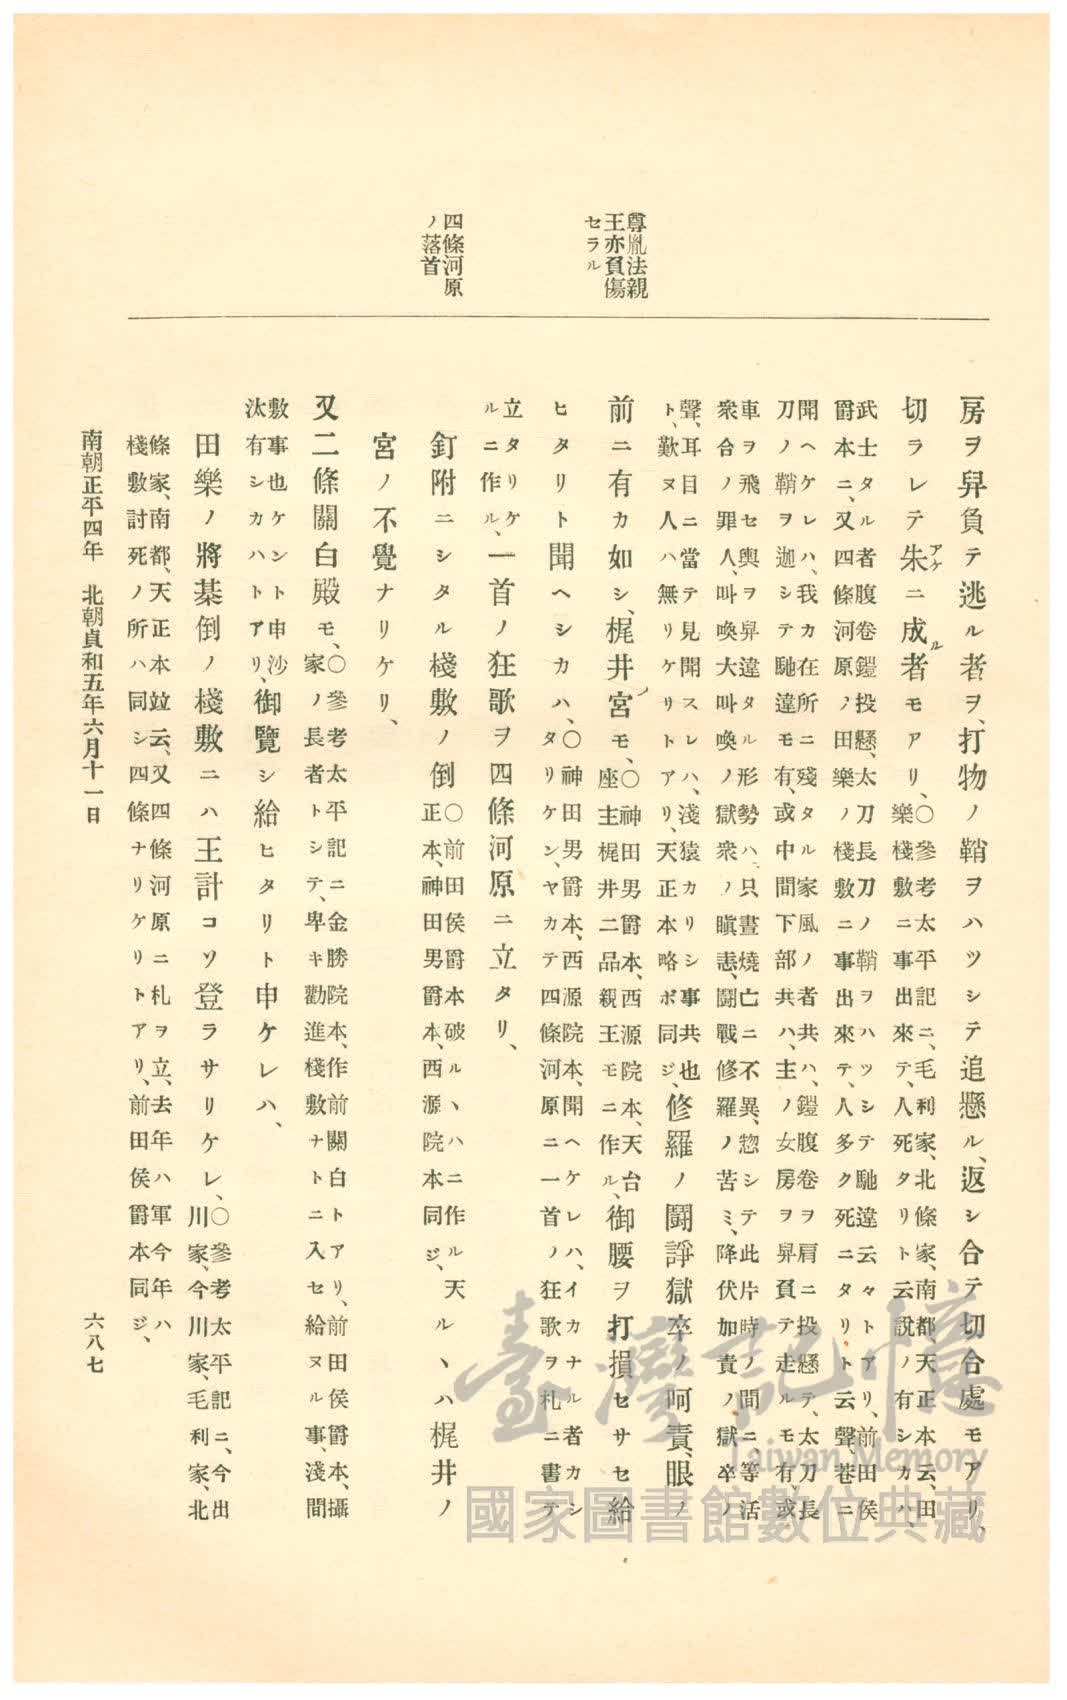 尊胤法親
王亦負傷
セラル
四條河原
ノ落首
房ヲ舁負テ逃ル者ヲ、打物ノ鞘ヲハツシテ追懸ル、返シ合テ切合處モアリ、
切ラレテ朱アケニ成ル者モアリ、〇參考太平記ニ、毛利家、北條家、南都天正本云、田
樂棧敷ニ事出來テ、人死タリト云説ノ有シカハ、
武士タル者腹卷鎧投懸、太刀長刀ノ鞘ヲハツシテ馳違云々トアリ、前田侯
爵本ニ、又四條河原ノ田樂ノ棧敷ニ事出來テ、人多ク死ニタリト云聲、巷ニ
聞ヘケレハ、我カ在所ニ殘タル家風ノ者共ハ、鎧腹卷ヲ肩ニ投懸テ、太刀長
刀ノ鞘ヲ迦シテ馳違モ有、或中間下部共ハ、主ノ女房ヲ舁負テ走ルモ有、或
車ヲ飛セ輿ヲ舁違タル形勢ハ、只晝燒亡ニ不異、惣シテ此片時ノ間ニ等活
衆合ノ罪人、叫喚大叫喚ノ獄衆ノ瞋恚、鬪戰修羅ノ苦ミ、降伏加責ノ獄卒ノ
聲、耳目ニ當テ見聞スレハ、淺猿カリシ事共也
ト、歎ヌ人ハ無リケリトアリ、天正本略ボ同ジ、修羅ノ鬪諍獄卒ノ呵責、眼ノ
前ニ有カ如シ、梶井宮ノモ、〇神田男爵本、西源院本、天台
座主梶井二品親王モニ作ル、御腰ヲ打損セサセ給
ヒタリト聞ヘシカハ、〇神田男爵本、西源院本、聞ヘケレハ、イカナル者カシ
タリケン、ヤカテ四條河原ニ一首ノ狂歌ヲ札ニ書テ
立タリケ
ルニ作ル、一首ノ狂歌ヲ四條河原ニ立タリ、
釘附ニシタル棧敷ノ倒〇前田侯爵本破ルヽハニ作ル、天
正本、神田男爵本、西源院本同ジ、ルヽハ梶井ノ
宮ノ不覺ナリケリ、
又二條關白殿モ、〇參考太平記ニ金勝院本、作前關白トアリ、前田侯爵本、攝
家ノ長者トシテ、卑キ勸進棧敷ナトニ入セ給ヌル事、淺間
敷事也ケント申沙
汰有シカハトアリ、御覽シ給ヒタリト申ケレハ、
田樂ノ將棊倒ノ棧敷ニハ王計コソ登ラサリケレ、〇參考太平記ニ、今出
川家、今川家、毛利家、北
條家、南都、天正本竝云、又四條河原ニ札ヲ立、去年ハ軍今年ハ
棧敷討死ノ所ハ同シ四條ナリケリトアリ、前田侯爵本同ジ、
南朝正平四年 北朝貞和五年六月十一日
六八七
臺灣記憶
Taiwan Memory
國家圖書館數位典藏